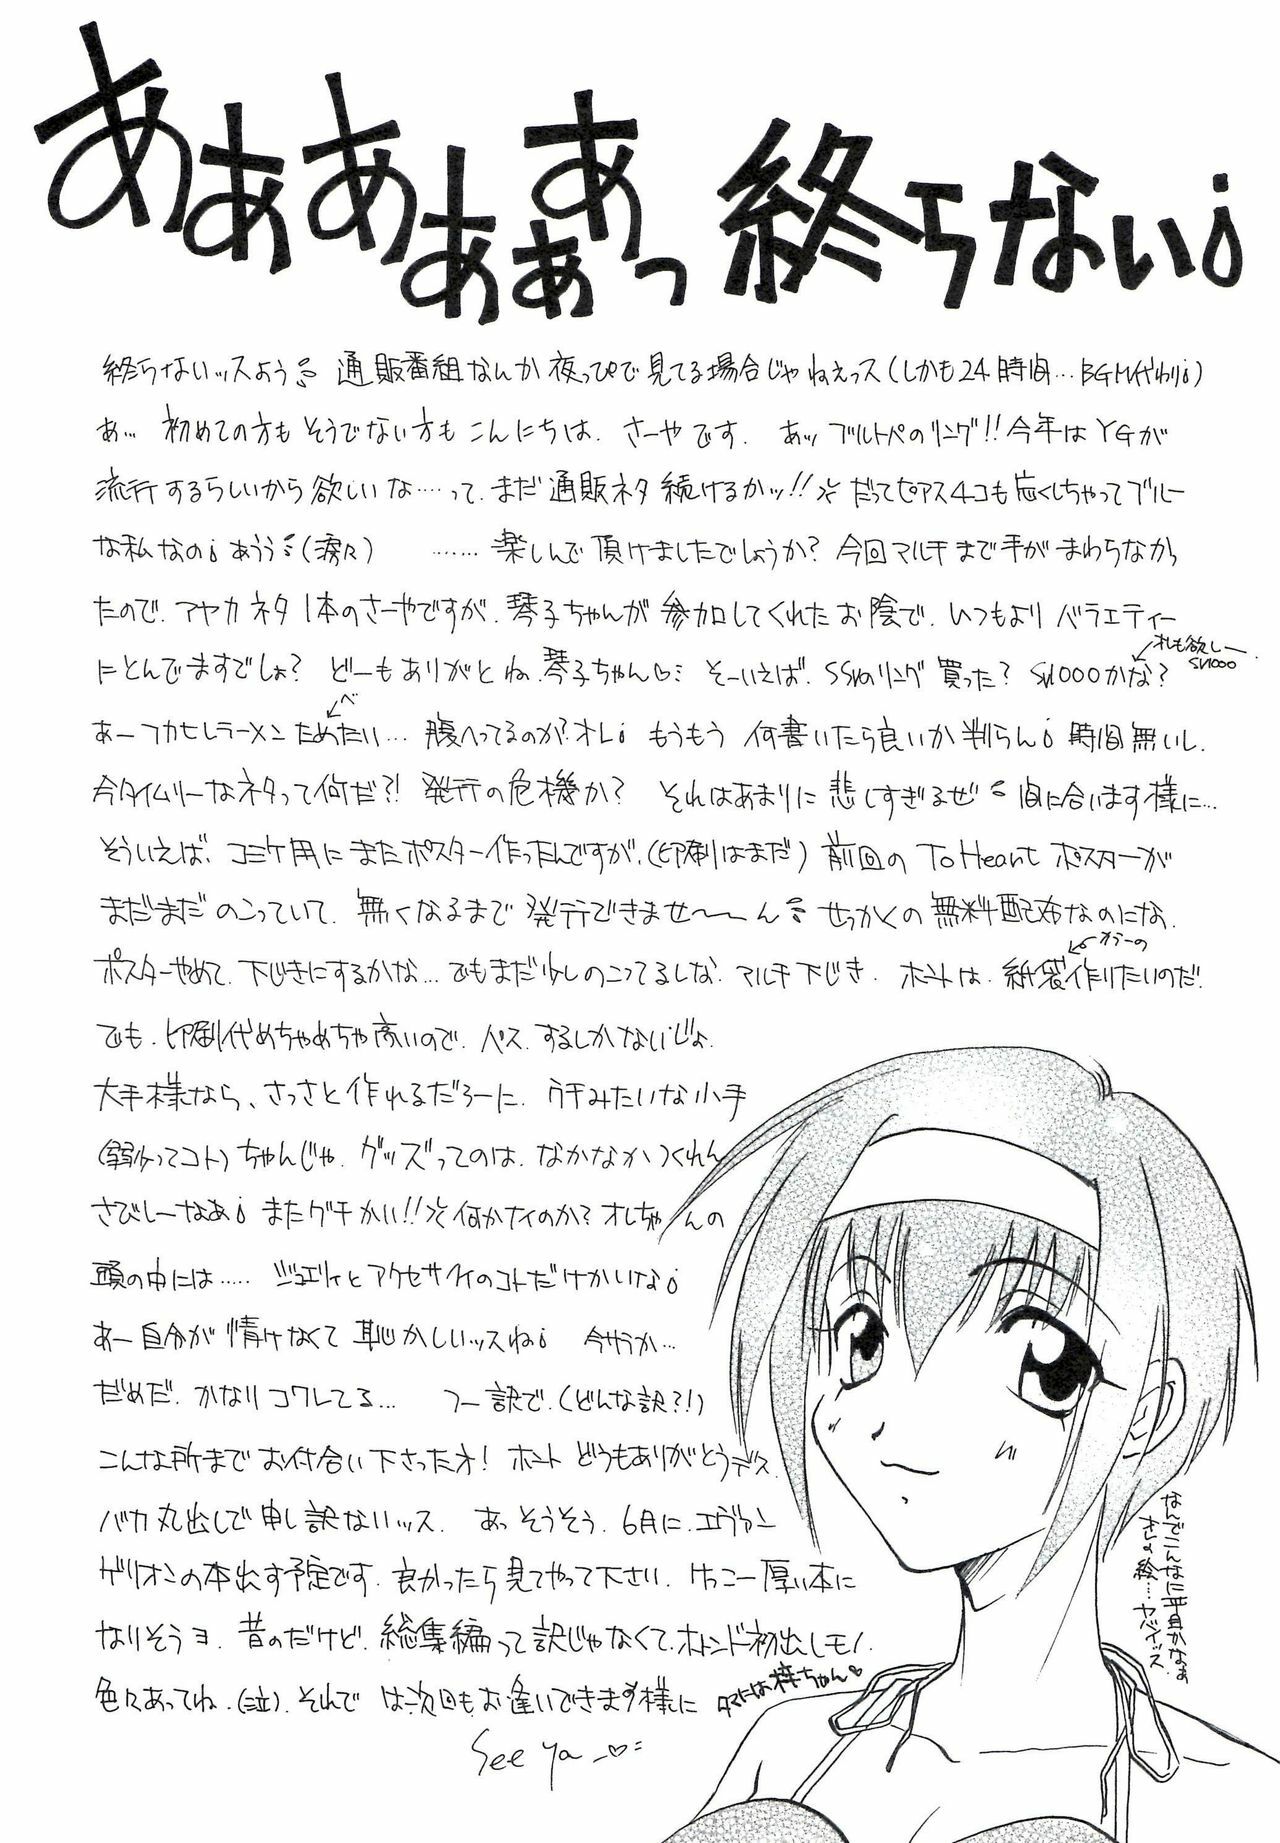 あああああぁっ 終らない!
終らないッスよう 通販番組なんか夜っぴで見てる場合じゃねぇっス(しかも24時間…BGM代わり!)
あ… 初めての方もそうでない方もこんにちは、さーやです。 あッ ブルトペのリング!!今年はYGが
流行するらしいから欲しいな……って、まだ通販ネタ続けるかッ!! だってピアス4コも亡くしちゃってブルー
な私なの! あうう(涙々) ……楽しんで頂けましたでしょうか?今回マルチまで手がまわらなかっ
たので、アヤカネタ1本のさーやですが、琴子ちゃんが参加してくれたお陰で、いつもよりバラエティー
にとんでますでしょ? どーもありがとね、琴子ちゃん♡ そーいえば、SSのリング買った? SV1000かな?
オレも欲しー SV1000
あーフカヒレラーメンためたい… 腹へってるのか?オレ! もうもう 何書いたら良いか判らん! 時間無いし、
べ
今タイムリーなネタって何だ?! 発行の危機か? それはあまりに悲しすぎるぜ 間に合います様に…
そういえば、コミケ用にまたポスター作ったんですが、(印刷はまだ)前回のToHeartポスターが
まだまだのこっていて、無くなるまで発行できませ〜〜ん せっかくの無料配布なのにな、
ポスターやめて、下じきにするかな…でもまだ少しのこってるしな、マルチ下じき。 ホントは、紙袋作りたいのだ!
カラーの
でも、印刷代めちゃめちゃ高いので、パス、するしかないじょ、
大手様なら、さっさと作れるだろーに、ウチみたいな小手
(弱小ってコト)ちゃんじゃ、グッズってのは、なかなかつくれん
さびしーなあ! またグチかい!! 何かナイのか?オレちゃんの
頭の中には…… ジュエリィとアクセサリィのコトだけかいな!
あー自分が情けなくて恥かしいッスね! 今サラか…
だめだ、かなりコワレてる… つー訳で、(どんな訳?!)
こんな所までお付合い下さった方! ホントどうもありがとうデス
バカ丸出しで申し訳ないッス。 あっそうそう、6月に、エヴァン
ゲリオンの本出す予定です、良かったら見てやって下さい、けっこー厚い本に
なりそうヨ、昔のだけど、総集編って訳じゃなくて、ホトンド初出しモノ、
色々あってね、(泣)、それでは、次回もお逢いできます様に
See Ya ♡
タマには梓ちゃん♡
なんでこんなに平目かなぁ
オレの絵…ヤバイッス